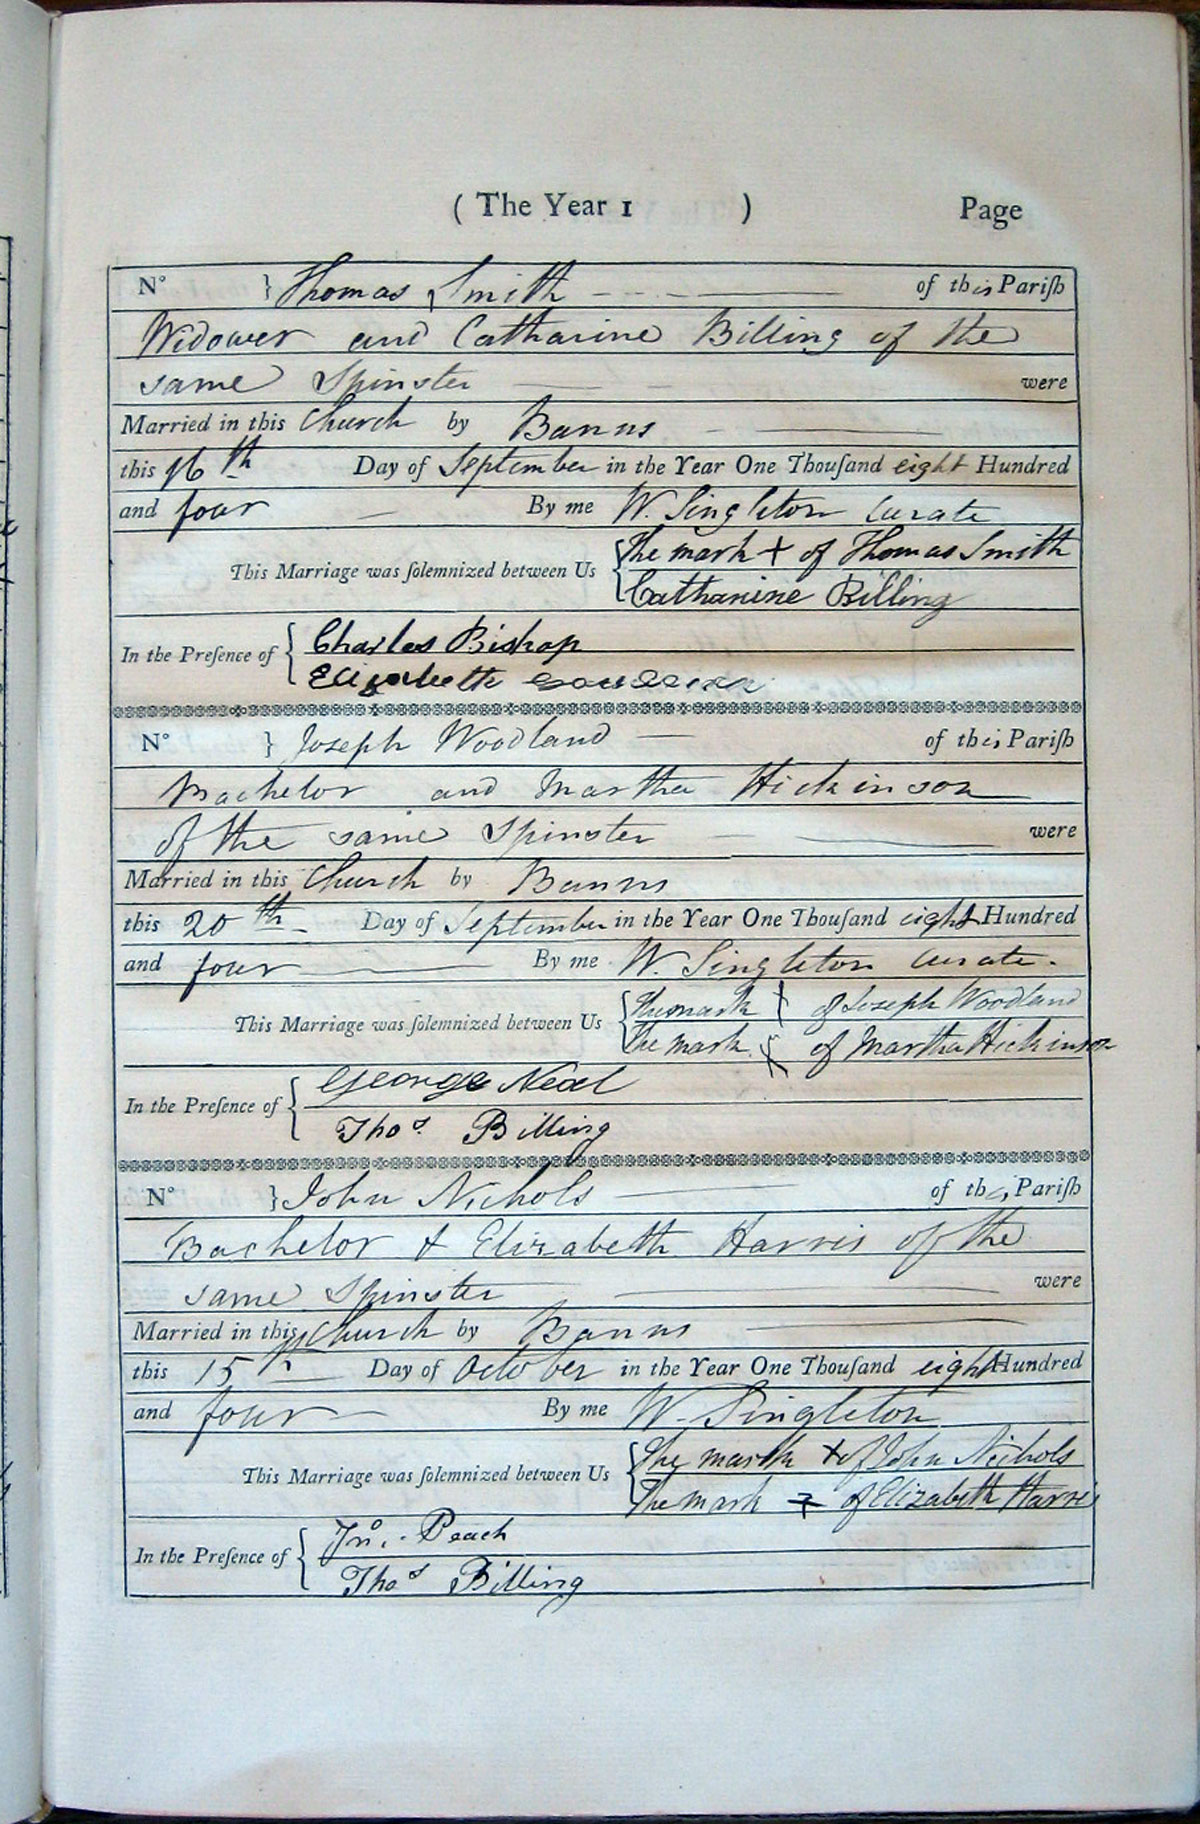 ( The Year 1 ) Page
N° } Thomas Smith of this Pariſh
Widower and Catharine Billing of the
same Spinster were
Married in this Church by Banns
this 16th Day of September in the Year One Thouſand eight Hundred
and four By me W. Singleton Curate
The mark + of Thomas Smith
This Marriage was ſolemnized between Us
Catharine Billing
Charles Bishop
In the Preſence of
Elizabeth
N° } Joseph Woodland of this Pariſh
Bachelor and Martha Hickinson
of the same Spinster were
Married in this Church by Banns
this 20th Day of September in the Year One Thouſand eight Hundred
and four By me W. Singleton Curate.
The mark + of Joseph Woodland
This Marriage was ſolemnized between Us
The mark + of Martha Hickinson
George Neal
In the Preſence of
Thos. Billing
N° } John Nichols of this Pariſh
Bachelor & Elizabeth Harris of the
same Spinster were
Married in this Church by Banns
this 15th Day of October in the Year One Thouſand eight Hundred
and four By me W. Singleton
The mark + of John Nichols
This Marriage was ſolemnized between Us
The mark + of Elizabeth Harris
Jno. Peach
In the Preſence of
Thos Billing